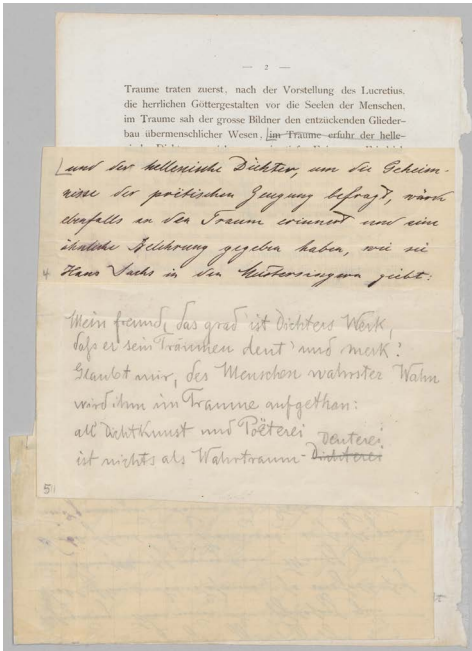 — 2 —
Traume traten zuerst, nach der Vorstellung des Lucretius,
die herrlichen Göttergestalten vor die Seelen der Menschen,
im Traume sah der grosse Bildner den entzückenden Glieder-
bau übermenschlicher Wesen, im Traume erfuhr der helle-
und der hellenische Dichter, um die Geheim-
nisse der poëtischen Zeugung befragt, würde
ebenfalls an den Traum erinnert und eine
ähnliche Belehrung gegeben haben, wie sie
4 Hans Sachs in den Meistersingern giebt:
Mein Freund, das grad' ist Dichters Werk,
daß er sein Träumen deut' und merk'.
Glaubt mir, des Menschen wahrster Wahn
wird ihm im Traume aufgethan:
all Dichtkunst und Poëterei
Deuterei
ist nichts als Wahrtraum-Dichterei
5